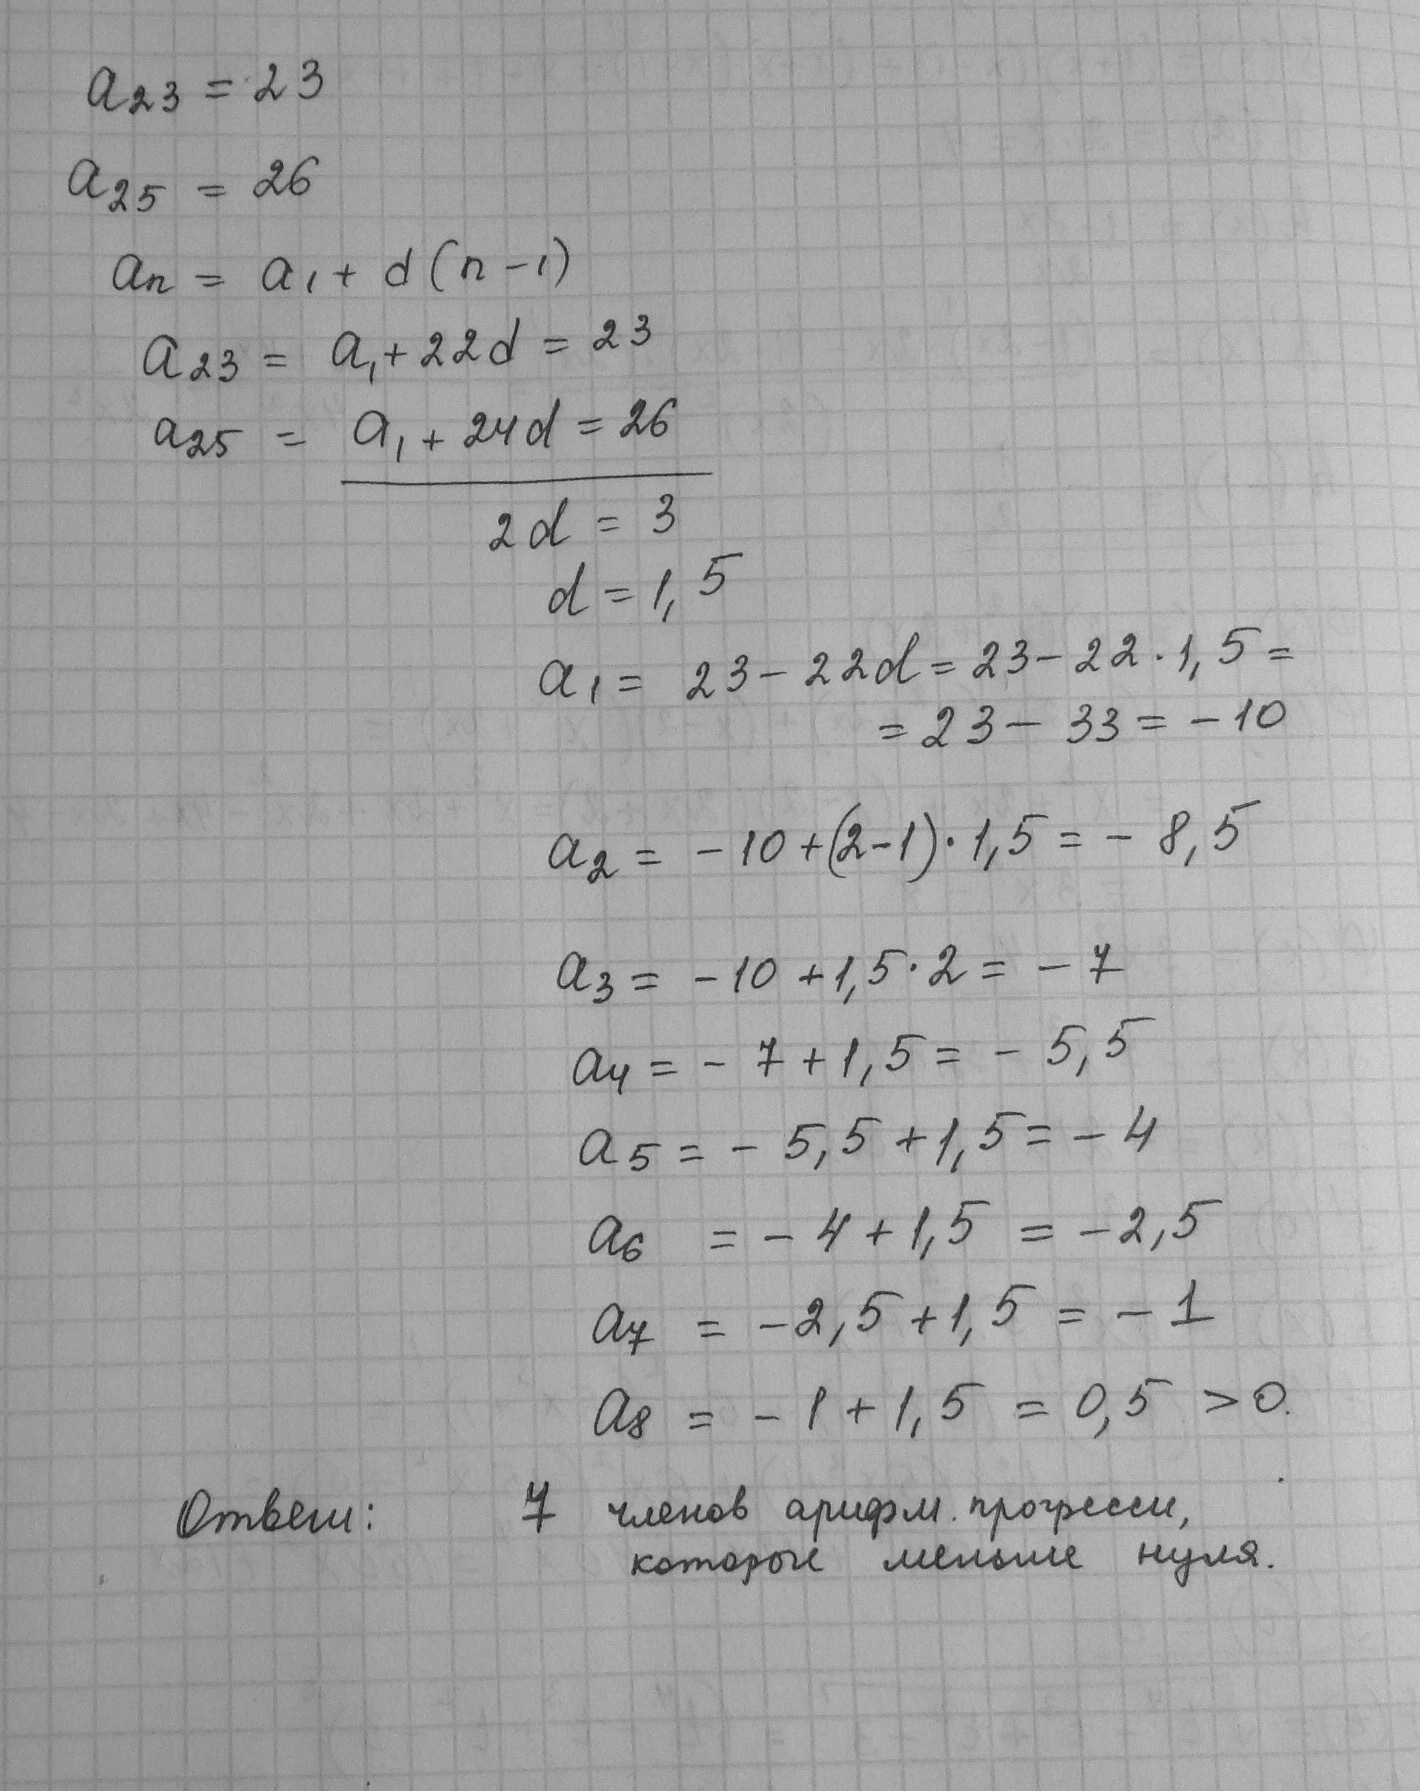 a₂₃ = 23
a₂₅ = 26
aₙ = a₁ + d(n-1)
a₂₃ = a₁ + 22d = 23
a₂₅ = a₁ + 24d = 26
2d = 3
d = 1,5
a₁ = 23 - 22d = 23 - 22 · 1,5 =
= 23 - 33 = -10
a₂ = -10 + (2-1) · 1,5 = - 8,5
a₃ = -10 + 1,5 · 2 = -7
a₄ = -7 + 1,5 = - 5,5
a₅ = - 5,5 + 1,5 = - 4
a₆ = - 4 + 1,5 = -2,5
a₇ = -2,5 + 1,5 = - 1
a₈ = - 1 + 1,5 = 0,5 > 0.
Ответ: 7 членов арифм. прогресси,
которые меньше нуля.